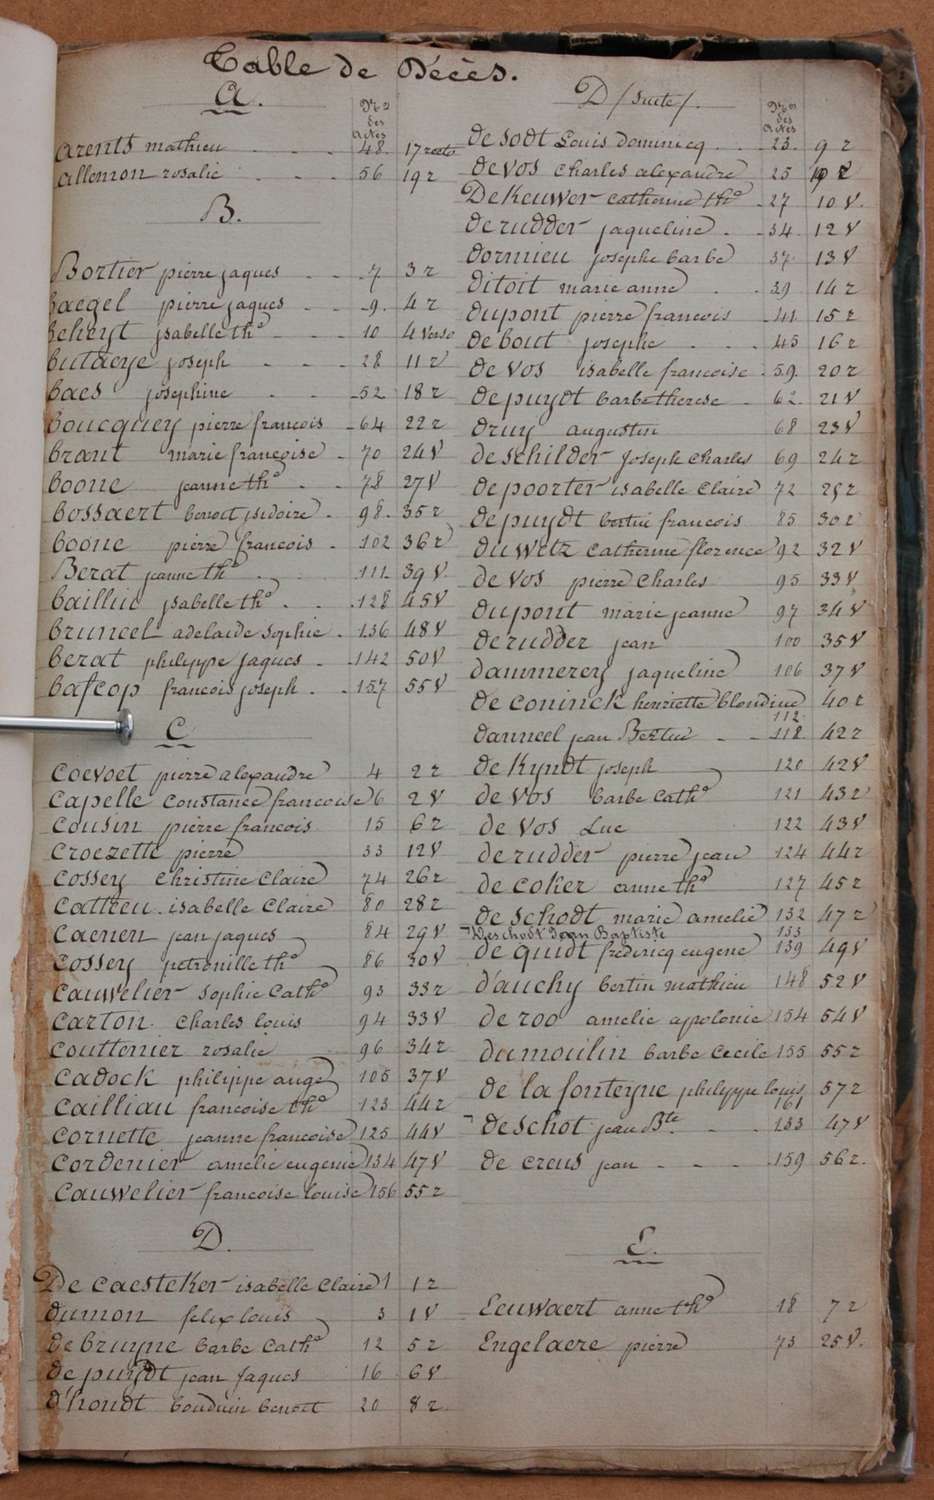 Table de Décès.
A.
Nos
des
actes
arents mathieu 48 17 recto
allemon rosalie 56 19 r
B.
Bortier pierre jaques 7 3 r
baegel pierre jaques 9 4 r
beheyt ysabelle the 10 4 verso
butaeye joseph 28 11 r
baes josephine 52 18 r
boucquey pierre francois 64 22 r
brant marie françoise 70 24 V
boone jeanne the 78 27 V
bossaert benoit ysidoire 98 35 r
boone pierre francois 102 36 r
Berat jeanne the 111 39 V
bailliu ysabelle the 128 45 V
bruneel adelaide sophie 136 48 V
berat philippe jaques 142 50 V
bafcop francois joseph 157 55 V
C
coevoet pierre alexandre 4 2 r
capelle constance francoise 6 2 V
cousin pierre francois 15 6 r
croezette pierre 33 12 V
cossey christine claire 74 26 r
catteeu isabelle claire 80 28 r
caenen jean jaques 84 29 V
cossey petronille the 86 30 V
cauwelier sophie cathe 93 33 r
carton charles louis 94 33 V
couttenier rosalie 96 34 r
cadock philippe auge 105 37 V
cailliau francoise the 123 44 r
cornette jeanne francoise 125 44 V
cordenier amelie eugenie 134 47 V
cauwelier francoise louise 156 55 r
D.
De caesteker isabelle claire 1 1 r
dumon felix louis 3 1 V
de bruyne barbe cathe 12 5 r
de puydt jean jaques 16 6 V
d'hondt bouduin benoit 20 8 r
D / suite /.
Nos
des
actes
de sodt Louis dominicq 23 9 r
de vos charles alexandre 25 10 r
De Keuwer catherine the 27 10 V.
de rudder jaqueline 34 12 V
dornieu josephe barbe 37 13 V
ditoit marie anne 39 14 r
dupont pierre francois 41 15 r
de bout josephe 45 16 r
de vos isabelle francoise 59 20 r
de puydt barbe therese 62 21 V
druy augustin 68 23 V
de schilder joseph charles 69 24 r
de poorter isabelle claire 72 25 r
de puydt bertin francois 85 30 r
du wetz catherine florence 92 32 V
de vos pierre charles 95 33 V
dupont marie jeanne 97 34 V
de rudder jean 100 35 V
dammerey jaqueline 106 37 V
de coninck henriette blondine 112 40 r
danneel jean Bertin 118 42 r
de Kyndt joseph 120 42 V
de vos barbe cathe 121 43 r
de vos Luc 122 43 V
de rudder pierre jean 124 44 r
de coker anne the 127 45 r
de schodt marie amelie 132 47 r
Deschodt Jean Baptiste 133
de quidt fredericq eugene 139 49 V
d'auchy bertin mathieu 148 52 V
de roo amelie appolonie 154 54 V
dumoulin barbe cecile 155 55 r
de la fonteyne philippe louis 161 57 r
deschot jean Bte 133 47 V
de creus jean 159 56 r.
E.
Eeuwaert anne the 18 7 r
Engelaere pierre 73 25 V.